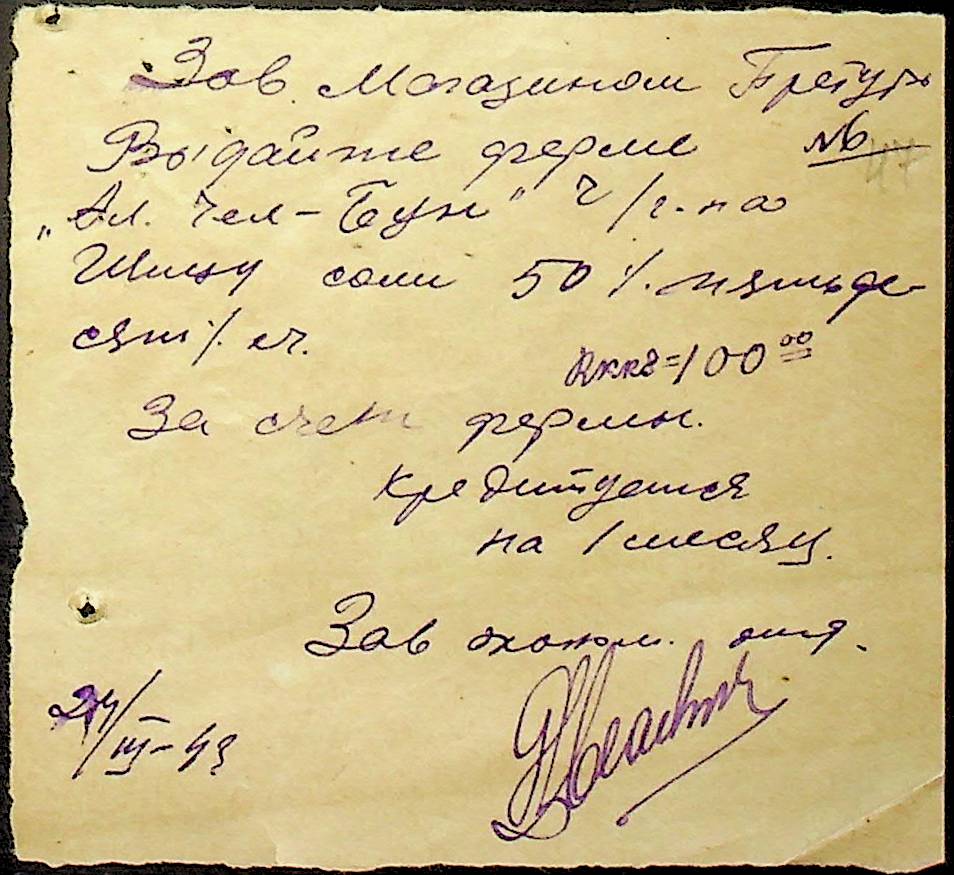 Зав. Магазином
Выдайте ферме №
„Ал. Чел-Бун" ч/г. на
соли 50 /. пятьде-
сят /. кг.
=100 00
За счет фермы.
кредитуется
на 1 месяц.
Зав эконом. отд.
24/III-43